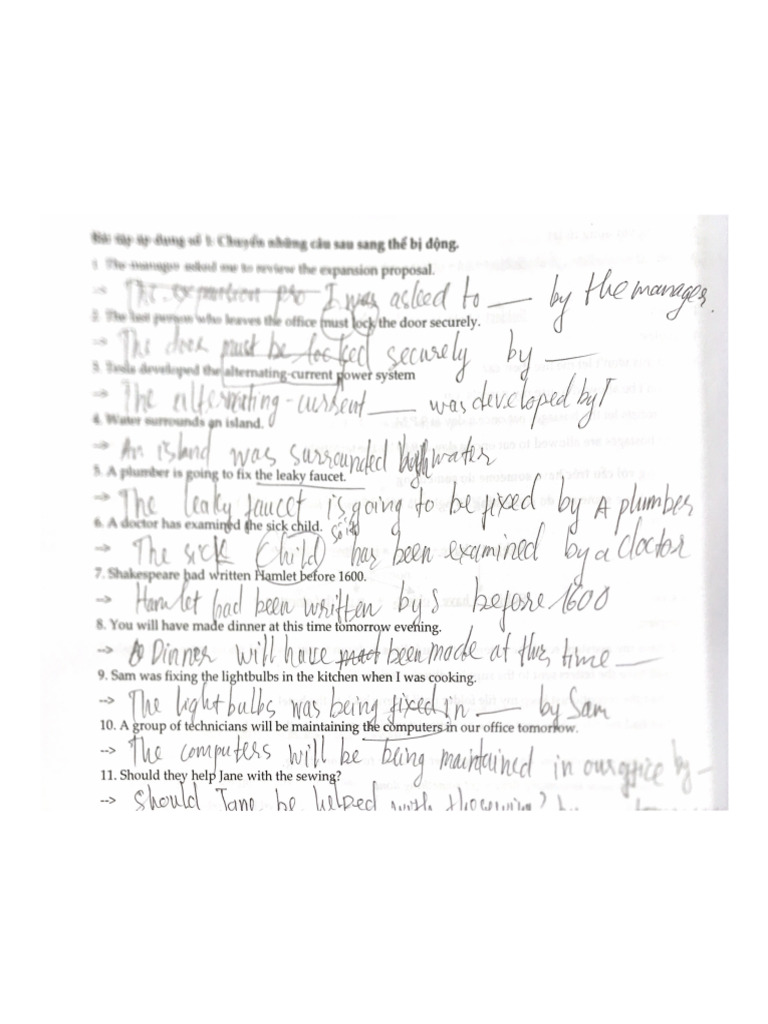 Bài tập áp dụng số 1: Chuyển những câu sau sang thể bị động.
1. The manager asked me to review the expansion proposal.
-> The expantion pro I was asked to ___ by the manager.
2. The last person who leaves the office must lock the door securely.
-> The door must be locked securely by ___
3. Tesla developed the alternating-current power system
-> The alternating-current ___ was developed by T
4. Water surrounds an island.
-> An island was surrounded by water
5. A plumber is going to fix the leaky faucet.
--> The leaky faucet is going to be fixed by A plumber
6. A doctor has examined the sick child. số ít
--> The sick child has been examined by a doctor
7. Shakespeare had written Hamlet before 1600.
--> Hamlet had been written by S before 1600
8. You will have made dinner at this time tomorrow evening.
--> Dinner will have been made at this time ___
9. Sam was fixing the lightbulbs in the kitchen when I was cooking.
--> The lightbulbs was being fixed in ___ by Sam
10. A group of technicians will be maintaining the computers in our office tomorrow.
--> The computers will be being maintained in our office by -
11. Should they help Jane with the sewing?
--> Should Jane be helped with the sewing?